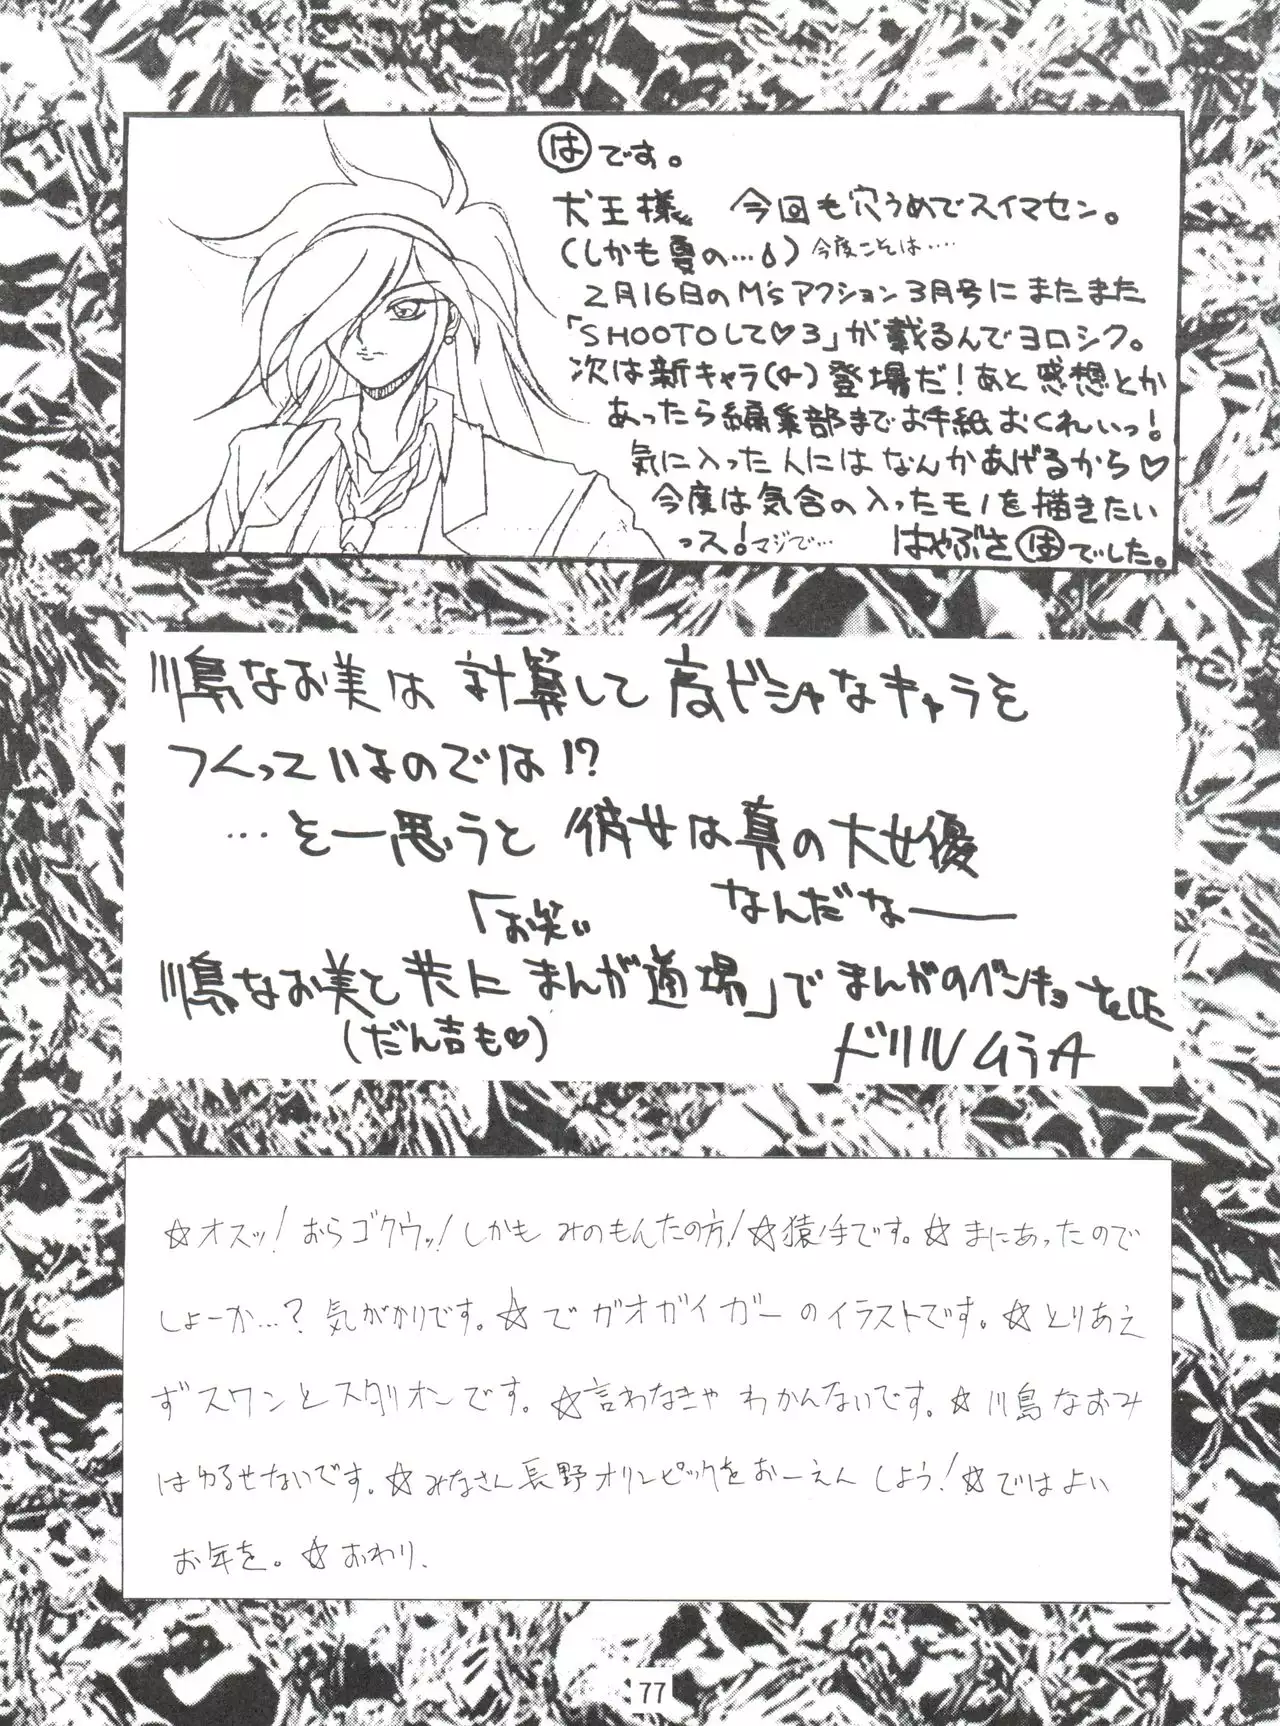 はです。
犬王様 今回も穴うめでスイマセン。
(しかも夏の…)今度こそは….
2月16日のM'sアクション3月号にまたまた
「SHOOTOして♡3」が載るんでヨロシク。
次は新キャラ(♀)登場だ!あと感想とか
あったら編集部までお手紙おくれいっ!
気に入った人にはなんかあげるから♡
今度は気合の入ったモノを描きたい
っス!マジで… はやぶさはでした。
川島なお美は計算して高ピシャなキャラを
つくっているのでは!?
…と一思うと 彼女は真の大女優
なんだなー
「お笑い
川島なお美と共に まんが道場」でまんがのベンキョーをした
(だん吉も♡)
ドリルムラA
☆オスッ!おらゴクウッ!しかもみのもんたの方!☆猿ノ手です。☆まにあったので
しょーか…?気がかりです。☆でガオガイガーのイラストです。☆とりあえ
ずスワンとスタリオンです。☆言わなきゃわかんないです。☆川島なおみ
はゆるせないです。☆みなさん長野オリンピックをおーえんしよう!☆ではよい
お年を。☆おわり.
77